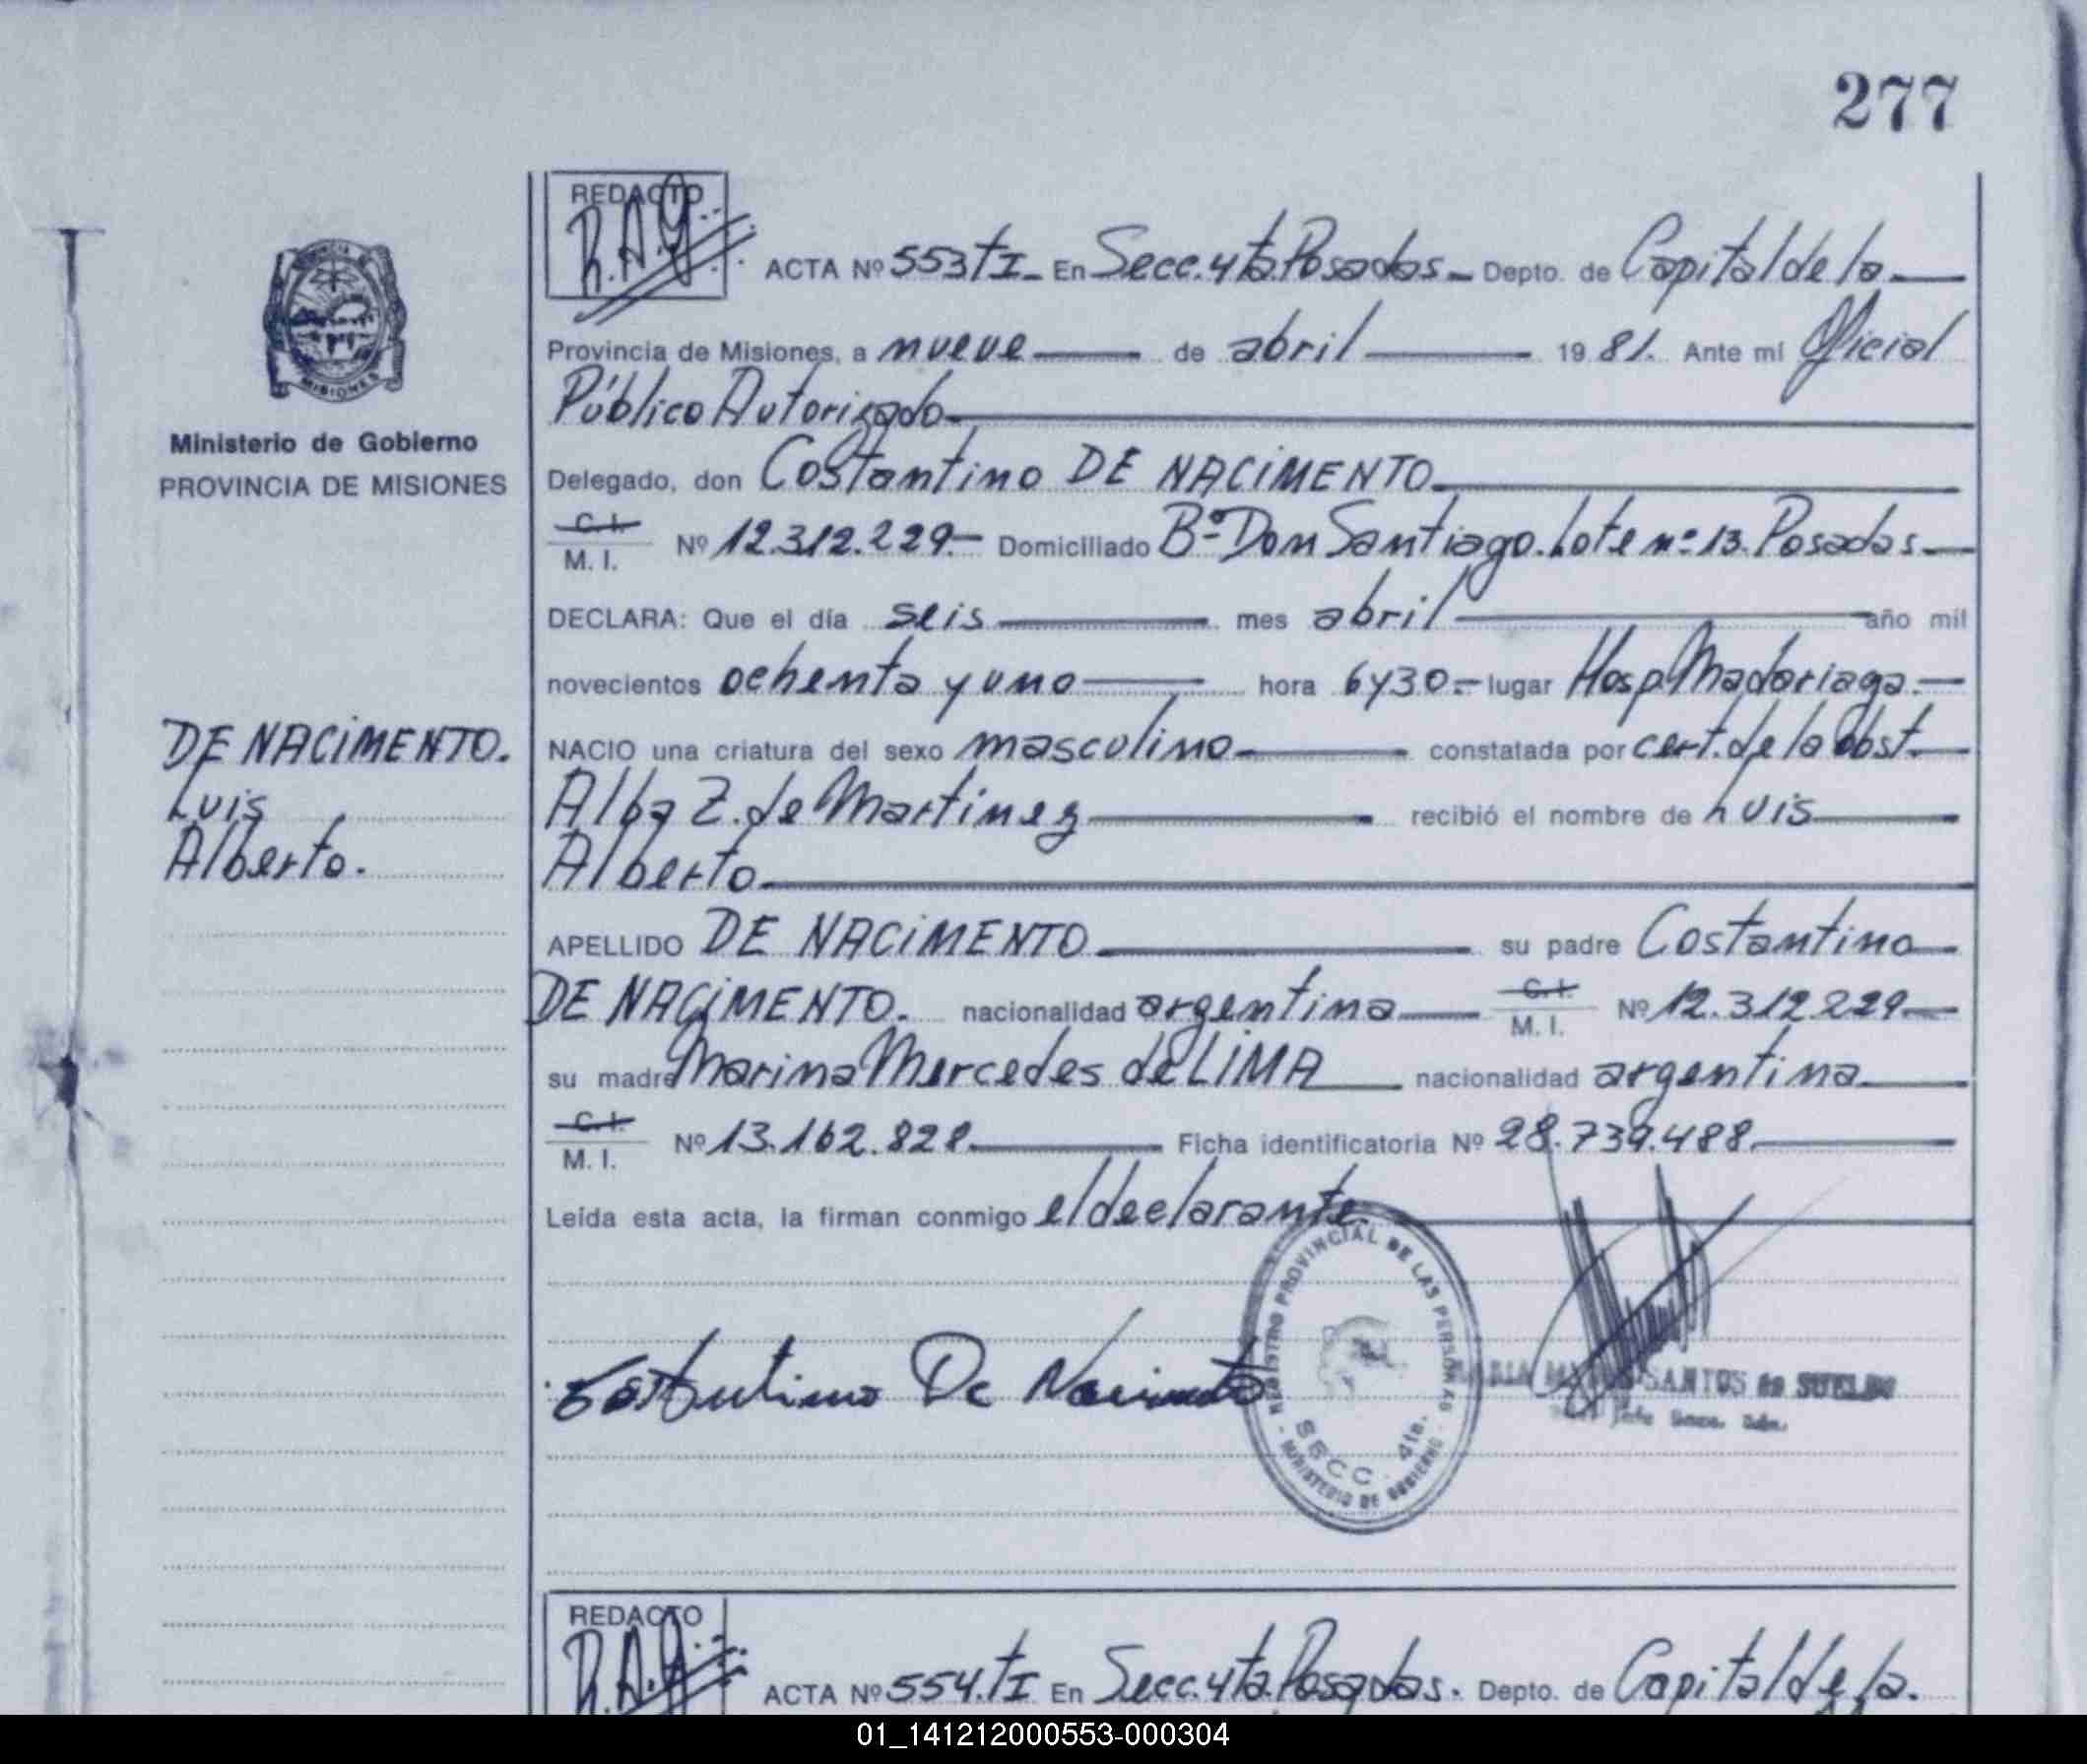 277
REDACTO
R.A.G.
ACTA Nº 553 tI - En Secc. 4ta. Posadas.- Depto. de Capital de la
Provincia de Misiones, a nueve de abril 19 81. Ante mí Oficial
Público Autorizado
Delegado, don Costantino DE NACiMENTO
C. I.
M. I. Nº 12.312.229.- Domiciliado Bº Don Santiago. Lote nº 13. Posadas.-
DECLARA: Que el día seis mes abril año mil
novecientos ochenta y uno hora 6 y 30.- lugar Hosp. Madariaga.-
NACIO una criatura del sexo masculino constatada por cert. de la obst.
Alba Z. de Martinez recibió el nombre de Luis
Alberto
APELLIDO DE NACiMENTO su padre Costantino
DE NACiMENTO. nacionalidad argentina C. I.
M. I. Nº 12.312.229
su madre Marina Mercedes de LiMA nacionalidad argentina
C. I.
M. I. Nº 13.162.828 Ficha identificatoria Nº 28.739.488
Leída esta acta, la firman conmigo el declarante
Costantino De Nacimento
REGISTRO PROVINCIAL DE LAS PERSONAS
SECC. 4ta.
MINISTERIO DE GOBIERNO
MARIA SANTOS de SUELDO
Jefe Secc.
PROVINCIA DE
MISIONES
Ministerio de Gobierno
PROVINCIA DE MISIONES
DE NACiMENTO.
Luis
Alberto.
REDACTO
R.A.G.
ACTA Nº 554. tI En Secc. 4ta. Posadas. Depto. de Capital de la.
01_141212000553-000304